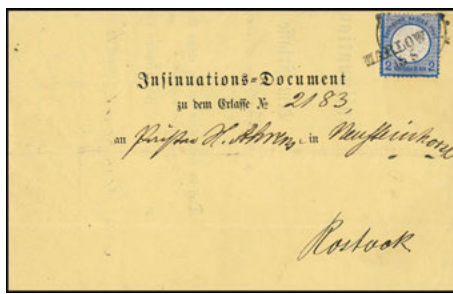 MARLOW
2 2
Insinuations-Document
zu dem Erlasse № 2183,
an H. Ahrens in
Rostock